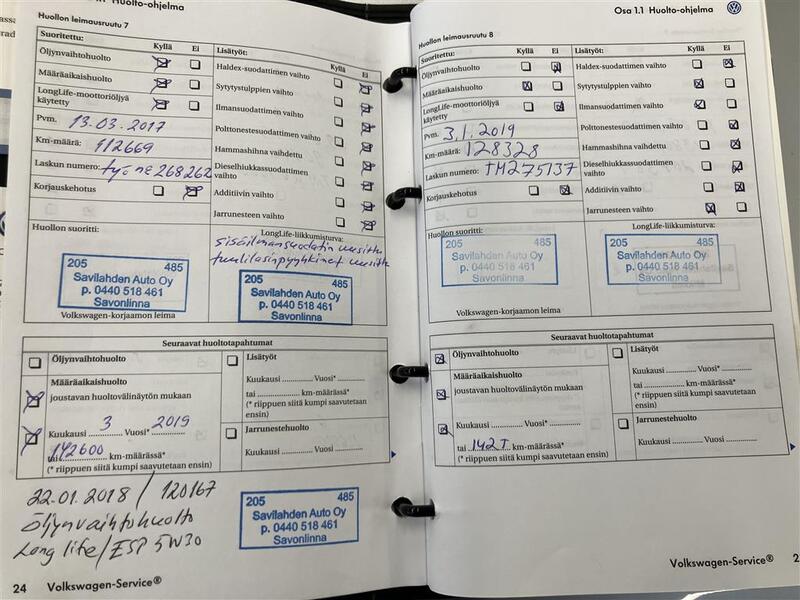 Huolto-ohjelma
Huollon leimausruutu 7
Suoritettu:
Kyllä Ei
Lisätyöt:
Kyllä Ei
Öljynvaihtohuolto
Haldex-suodattimen vaihto
Määräaikaishuolto
Sytytystulppien vaihto
LongLife-moottoriöljyä
käytetty
Ilmansuodattimen vaihto
Pvm. 13.03.2017
Polttonestesuodattimen vaihto
Km-määrä: 112669
Hammashihna vaihdettu
Laskun numero: työ nє 268262
Dieselhiukkassuodattimen
vaihto
Korjauskehotus
Additiivin vaihto
Jarrunesteen vaihto
Huollon suoritti:
LongLife-liikkumisturva:
sisäilmansuodatin uusittu
tuulilasinpyyhkimet uusittu
205 485
Savilahden Auto Oy
p. 0440 518 461
Savonlinna
205 485
Savilahden Auto Oy
p. 0440 518 461
Savonlinna
Volkswagen-korjaamon leima
Seuraavat huoltotapahtumat
Öljynvaihtohuolto
Lisätyöt
Määräaikaishuolto
joustavan huoltovälinäytön mukaan
Kuukausi ............ Vuosi* ............
tai ............ km-määrässä*
(* riippuen siitä kumpi saavutetaan
ensin)
Kuukausi 3 Vuosi* 2019
tai 142600 km-määrässä*
(* riippuen siitä kumpi saavutetaan ensin)
Jarrunestehuolto
Kuukausi ............ Vuosi ............
22.01.2018 / 120167
Öljynvaihtohuolto
Long life / ESP 5W30
205 485
Savilahden Auto Oy
p. 0440 518 461
Savonlinna
24 Volkswagen-Service®
Osa 1.1 Huolto-ohjelma
Huollon leimausruutu 8
Suoritettu:
Kyllä Ei
Lisätyöt:
Kyllä Ei
Öljynvaihtohuolto
Haldex-suodattimen vaihto
Määräaikaishuolto
Sytytystulppien vaihto
LongLife-moottoriöljyä
käytetty
Ilmansuodattimen vaihto
Pvm. 3.1.2019
Polttonestesuodattimen vaihto
Km-määrä: 128328
Hammashihna vaihdettu
Laskun numero: TM275137
Dieselhiukkassuodattimen
vaihto
Korjauskehotus
Additiivin vaihto
Jarrunesteen vaihto
Huollon suoritti:
LongLife-liikkumisturva:
205 485
Savilahden Auto Oy
p. 0440 518 461
Savonlinna
205 485
Savilahden Auto Oy
p. 0440 518 461
Savonlinna
Volkswagen-korjaamon leima
Seuraavat huoltotapahtumat
Öljynvaihtohuolto
Lisätyöt
Määräaikaishuolto
joustavan huoltovälinäytön mukaan
Kuukausi ............ Vuosi* ............
tai ............ km-määrässä*
(* riippuen siitä kumpi saavutetaan
ensin)
Kuukausi ............ Vuosi* ............
tai 142T km-määrässä*
(* riippuen siitä kumpi saavutetaan ensin)
Jarrunestehuolto
Kuukausi ............ Vuosi ............
Volkswagen-Service®